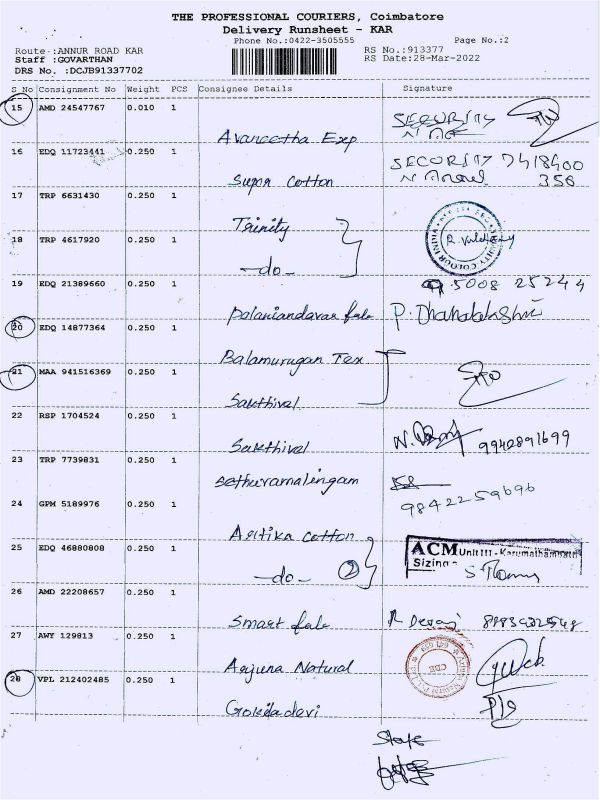 THE PROFESSIONAL COURIERS, Coimbatore
Delivery Runsheet - KAR
Phone No.:0422-3505555 Page No.:2
Route :ANNUR ROAD KAR RS No.:913377
Staff :GOVARTHAN RS Date:28-Mar-2022
DRS No. :DCJB91337702
S No Consignment No Weight PCS Consignee Details Signature
15 AMD 24547767 0.010 1 SECURITY
Avaneetha Exp
16 EDQ 11723441 0.250 1 SECURITY
Supr Cotton 356
17 TRP 6631430 0.250 1
Trinity
18 TRP 4617920 0.250 1 COLOUR INDIA
-do-
19 EDQ 21389660 0.250 1 95008 25244
Palaniandavar fab P. Dhanalakshmi
20 EDQ 14877364 0.250 1
Balamurugan Tex
21 MAA 941516369 0.250 1
Sakthivel
22 RSP 1704524 0.250 1
Sakthivel 9942891699
23 TRP 7739831 0.250 1
Sethuramalingam
9842259696
24 GPM 5189976 0.250 1
Cotton
25 EDQ 46880808 0.250 1 ACM Unit III - Karumathampatti
Sizing
-do- 2
26 AMD 22208657 0.250 1
Smart fab
27 AWY 129813 0.250 1 CBE
Arjuna Natural
28 VPL 212402485 0.250 1
Gokiladevi